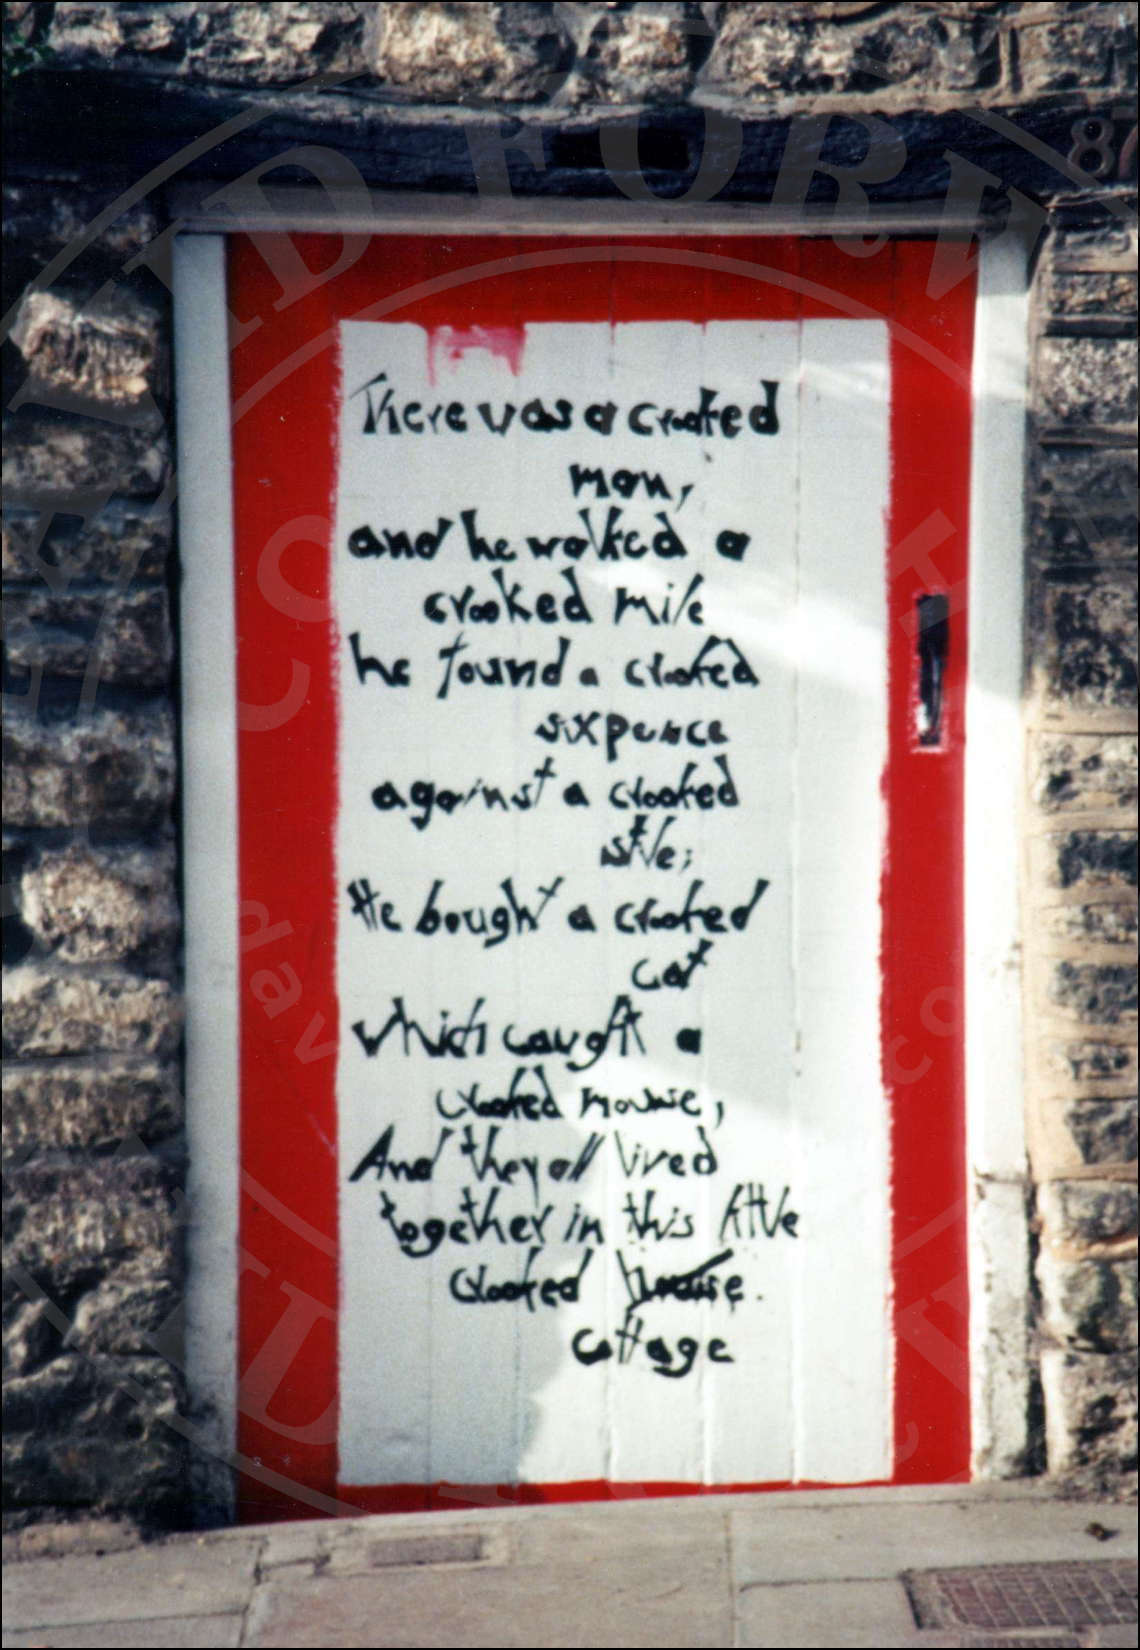 There was a crooked
man,
and he walked a
crooked mile
he found a crooked
sixpence
against a crooked
stile;
He bought a crooked
cat
which caught a
crooked mouse,
And they all lived
together in this little
crooked house.
cottage